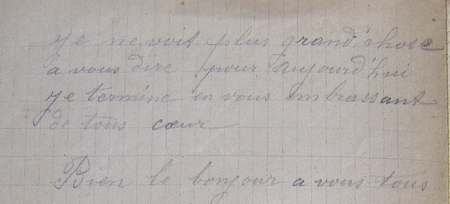 Je ne voit plus grand'chose
a vous dire pour aujourd'hui
je termine en vous embrassant
de tous cœur
Bien le bonjour a vous tous